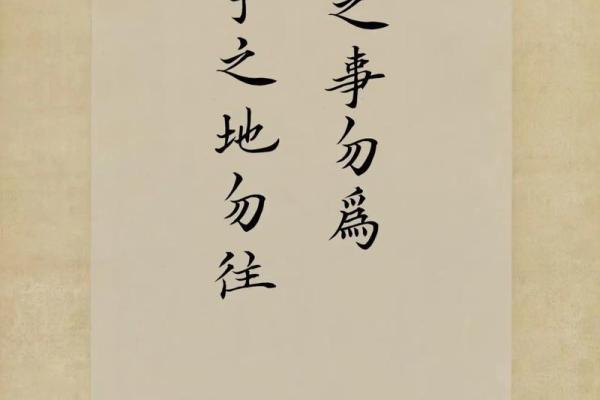 之事勿爲
之地勿往